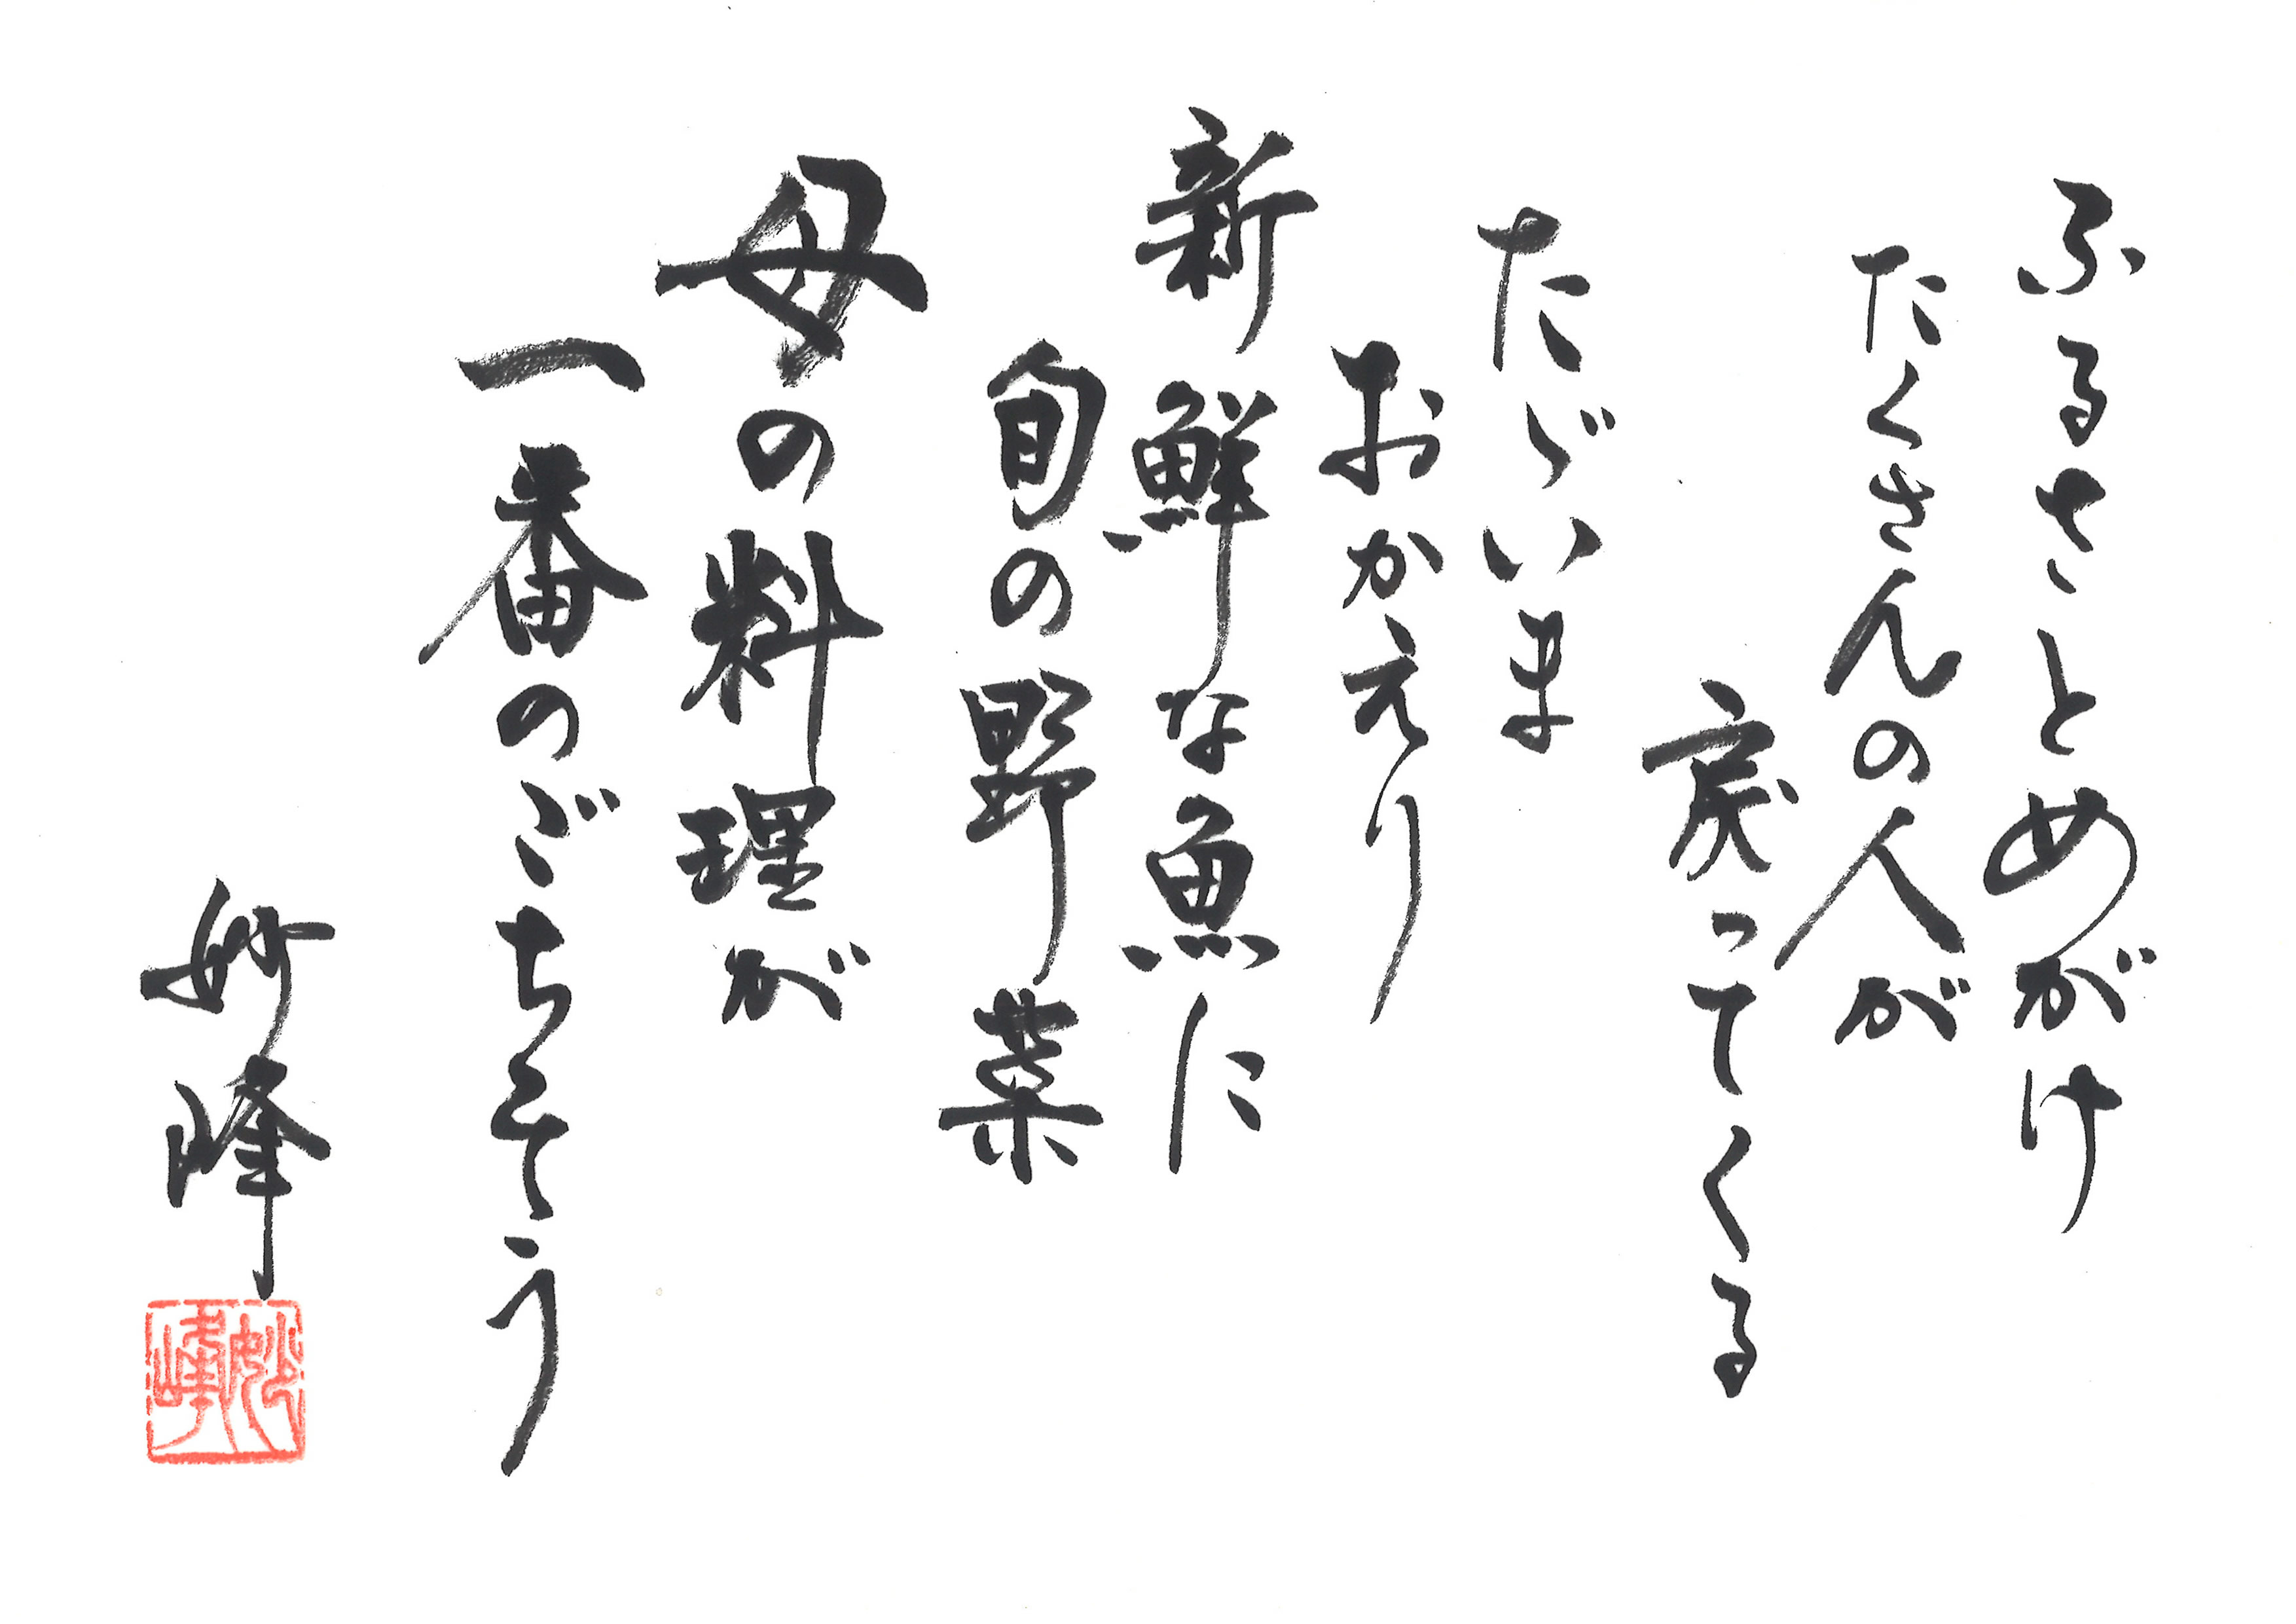 ふるさとめがけ
たくさんの人が
戻ってくる
たゞいま
おかえり
新鮮な魚に
旬の野菜
母の料理が
一番のごちそう
妙峰
妙峰